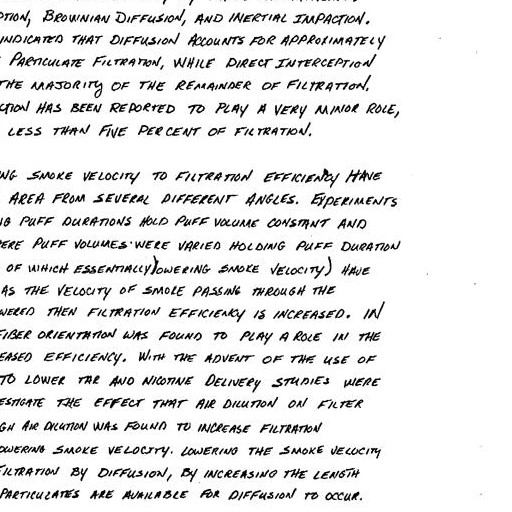 PTION, BROWNIAN DIFFUSION, AND INERTIAL IMPACTION.
INDICATED THAT DIFFUSION ACCOUNTS FOR APPROXIMATELY
PARTICULATE FILTRATION, WHILE DIRECT INTERCEPTION
THE MAJORITY OF THE REMAINDER OF FILTRATION.
CTION HAS BEEN REPORTED TO PLAY A VERY MINOR ROLE,
LESS THAN FIVE PERCENT OF FILTRATION.
NG SMOKE VELOCITY TO FILTRATION EFFICIENCY HAVE
AREA FROM SEVERAL DIFFERENT ANGLES. EXPERIMENTS
NG PUFF DURATIONS HOLD PUFF VOLUME CONSTANT AND
ERE PUFF VOLUMES WERE VARIED HOLDING PUFF DURATION
OF WHICH ESSENTIALLY LOWERING SMOKE VELOCITY) HAVE
AS THE VELOCITY OF SMOKE PASSING THROUGH THE
WERED THEN FILTRATION EFFICIENCY IS INCREASED. IN
FIBER ORIENTATION WAS FOUND TO PLAY A ROLE IN THE
EASED EFFICIENCY. WITH THE ADVENT OF THE USE OF
TO LOWER TAR AND NICOTINE DELIVERY STUDIES WERE
ESTIGATE THE EFFECT THAT AIR DILUTION ON FILTER
GH AIR DILUTION WAS FOUND TO INCREASE FILTRATION
OWERING SMOKE VELOCITY. LOWERING THE SMOKE VELOCITY
FILTRATION BY DIFFUSION, BY INCREASING THE LENGTH
PARTICULATES ARE AVAILABLE FOR DIFFUSION TO OCCUR.